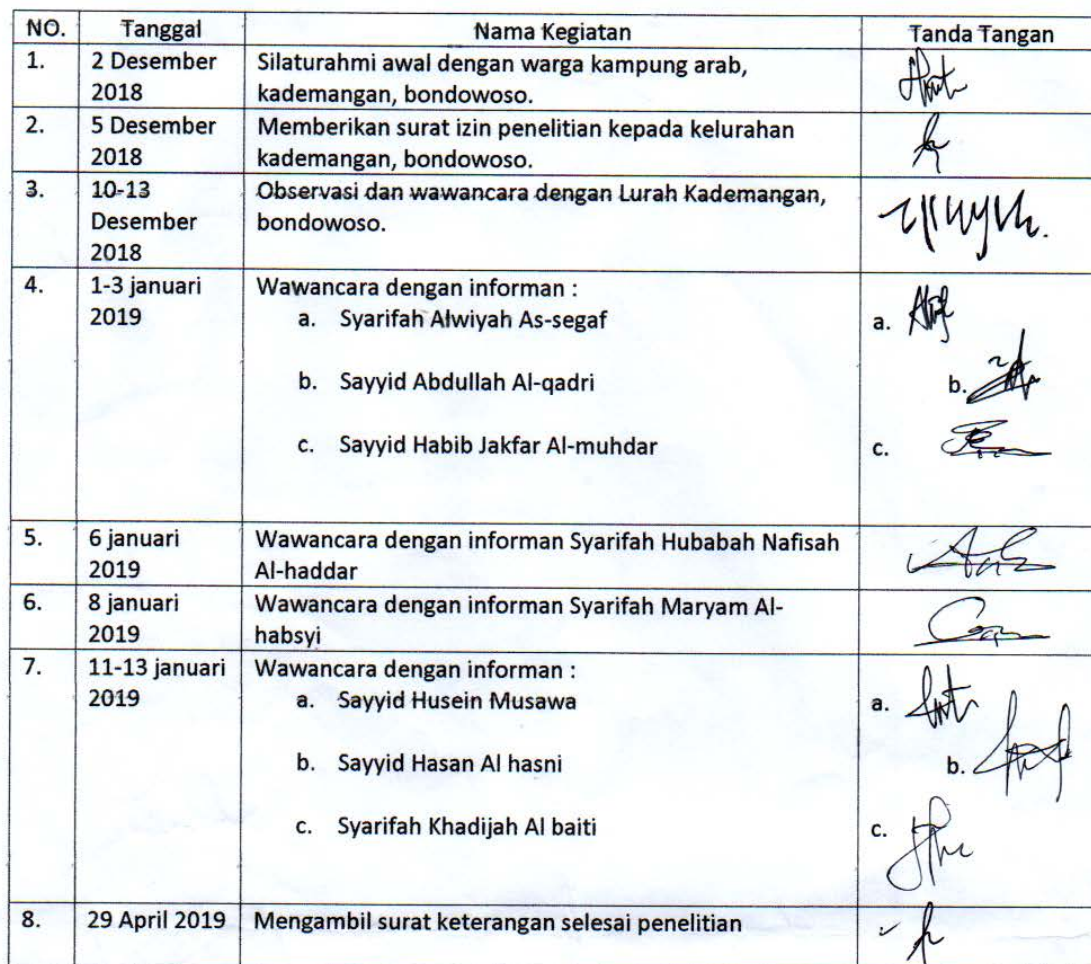 NO. Tanggal Nama Kegiatan Tanda Tangan
1. 2 Desember Silaturahmi awal dengan warga kampung arab,
2018 kademangan, bondowoso.
2. 5 Desember Memberikan surat izin penelitian kepada kelurahan
2018 kademangan, bondowoso.
3. 10-13 Observasi dan wawancara dengan Lurah Kademangan,
Desember bondowoso.
2018
4. 1-3 januari Wawancara dengan informan :
2019 a. Syarifah Alwiyah As-segaf a.
b. Sayyid Abdullah Al-qadri b.
c. Sayyid Habib Jakfar Al-muhdar c.
5. 6 januari Wawancara dengan informan Syarifah Hubabah Nafisah
2019 Al-haddar
6. 8 januari Wawancara dengan informan Syarifah Maryam Al-
2019 habsyi
7. 11-13 januari Wawancara dengan informan :
2019 a. Sayyid Husein Musawa a.
b. Sayyid Hasan Al hasni b.
c. Syarifah Khadijah Al baiti c.
8. 29 April 2019 Mengambil surat keterangan selesai penelitian